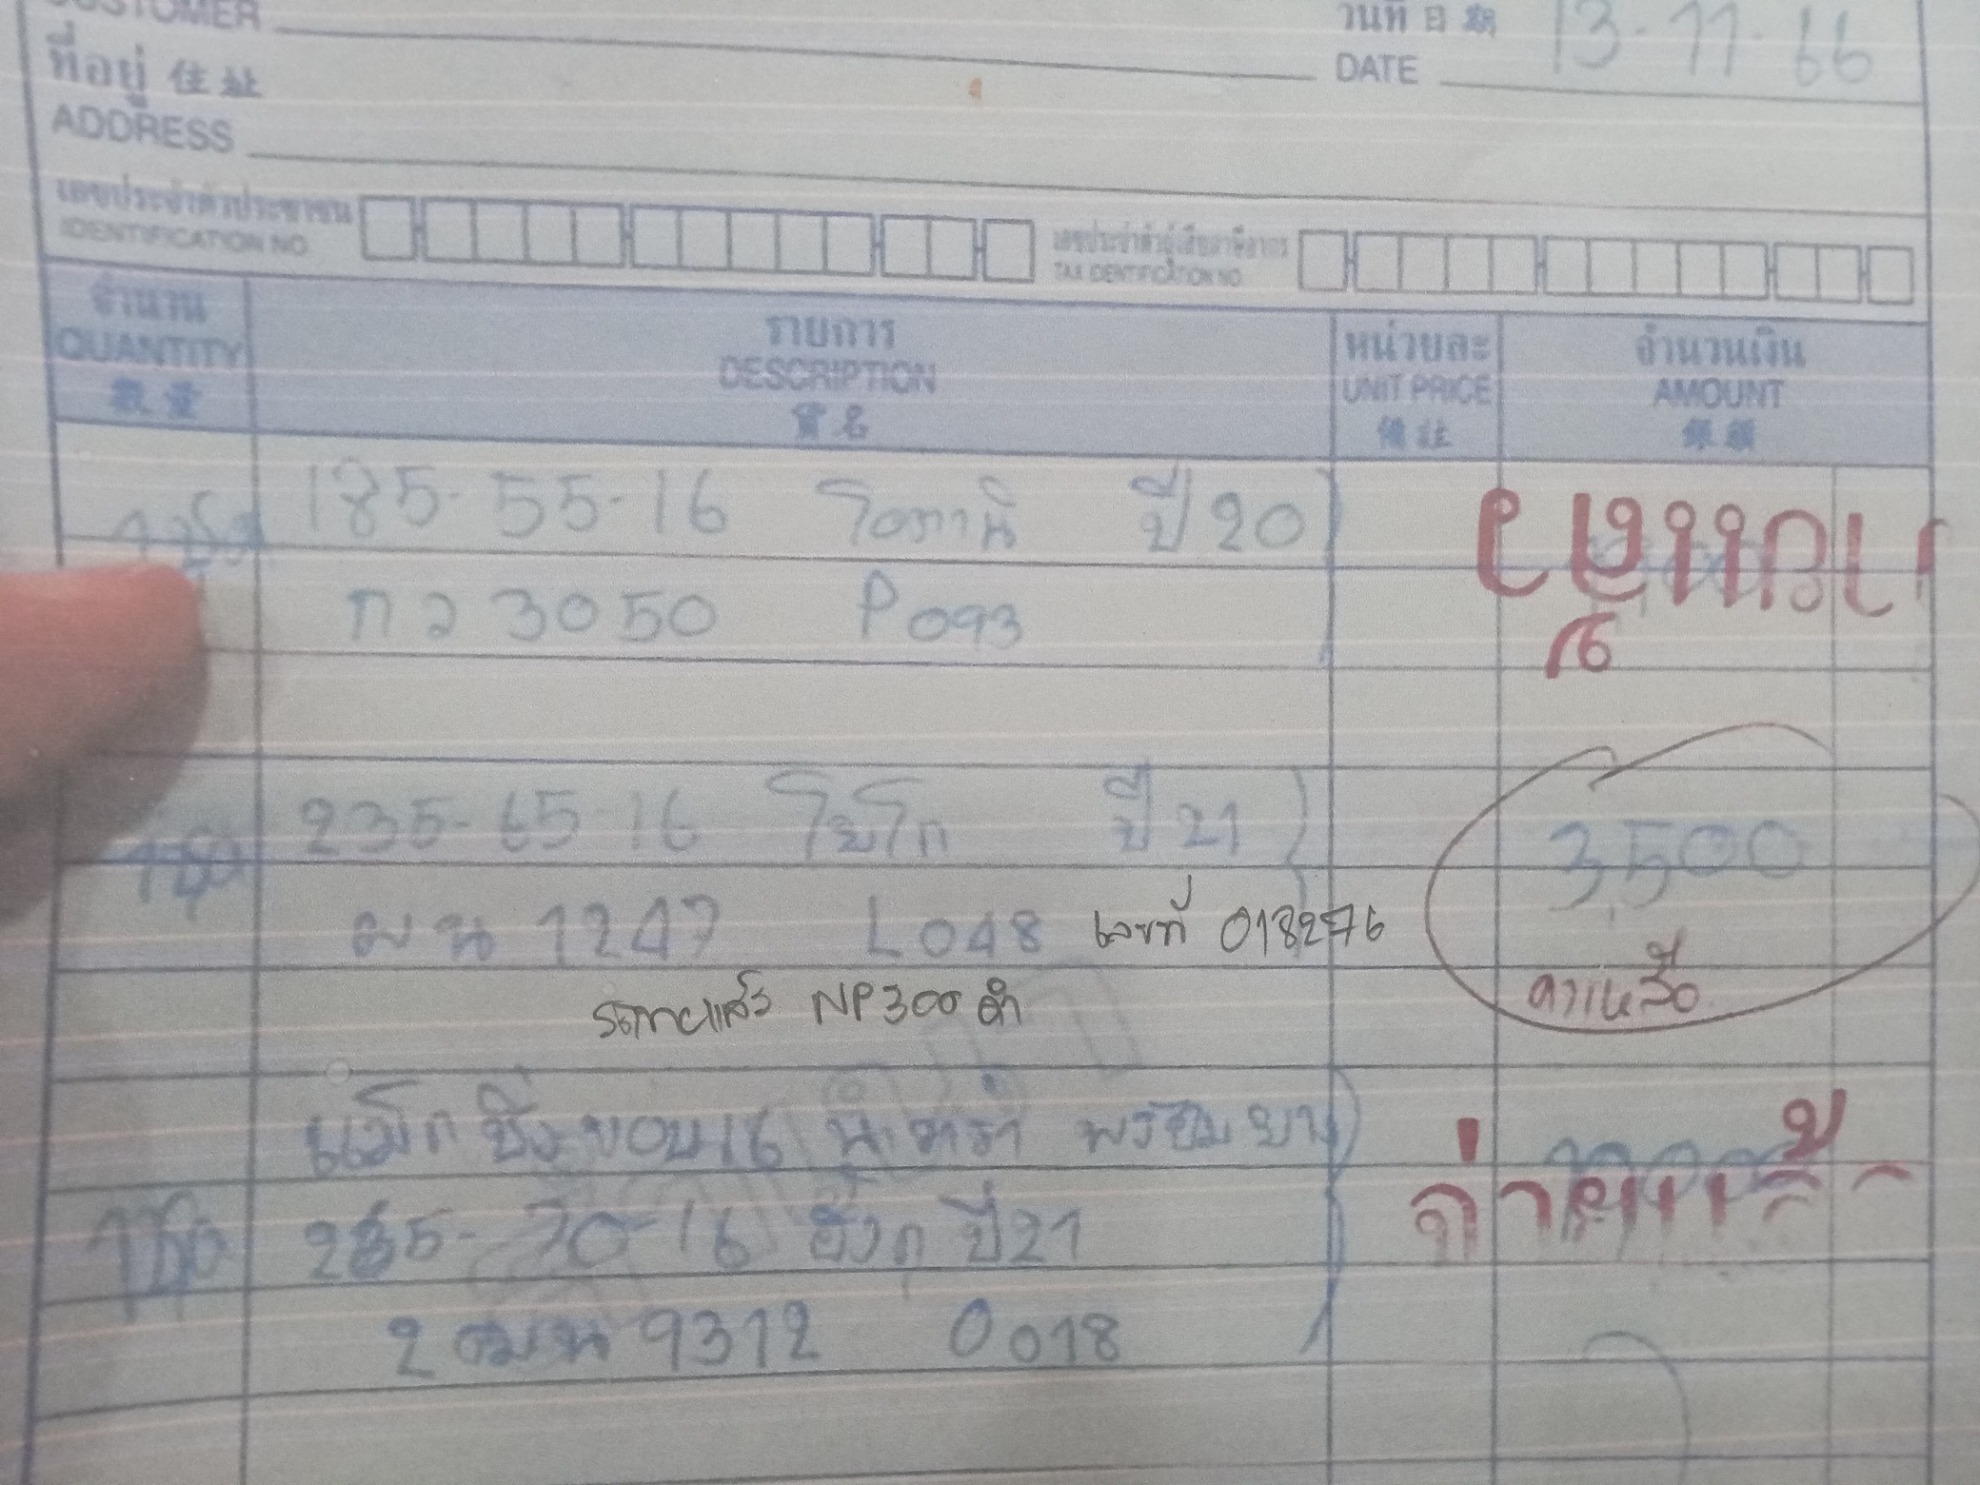 CUSTOMER
วันที่ 日期 13-11-66
DATE
ที่อยู่ 住址
ADDRESS
เลขประจำตัวประชาชน
IDENTIFICATION NO.
เลขประจำตัวผู้เสียภาษีอากร
TAX IDENTIFICATION NO.
จำนวน รายการ หน่วยละ จำนวนเงิน
QUANTITY DESCRIPTION UNIT PRICE AMOUNT
數量 貨名 備註 銀額
1 ชุด 185-55-16 โอตานิ ปี 20
กว 3050 P093
235-65-16 โยโก ปี 21 3,500
1 ชุด
มน 1247 L048 เลขที่ 018276
ควเหลือ
รถกระแสะ NP300 ดำ
แม็ก ขอบ 16 พร้อมยาง
1 ชุด 265-70-16 ปี 21
จ่ายแล้ว
2 ฒน 9312 O018